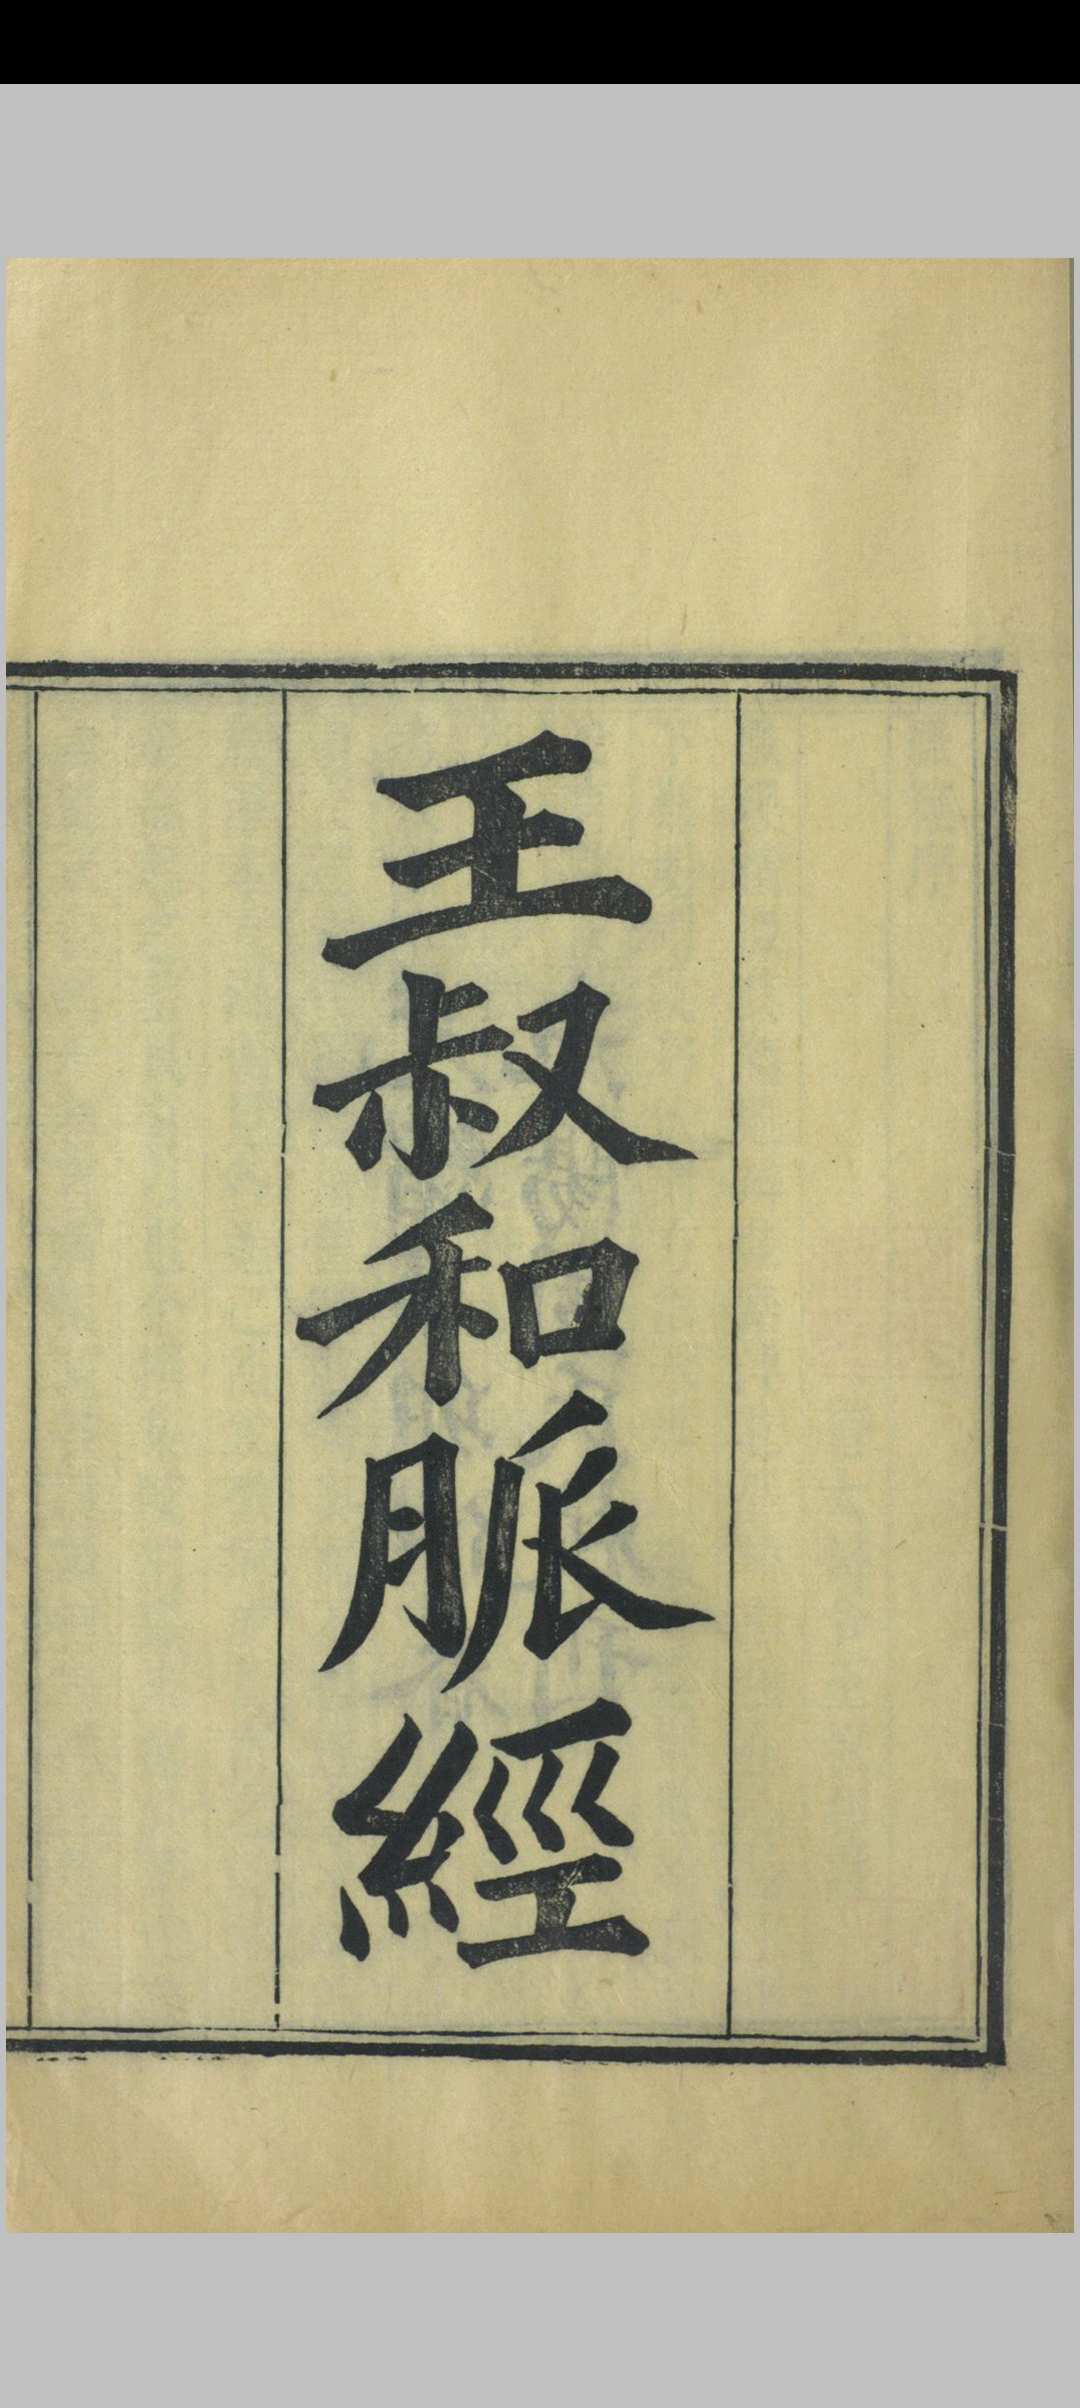 王叔和脈經